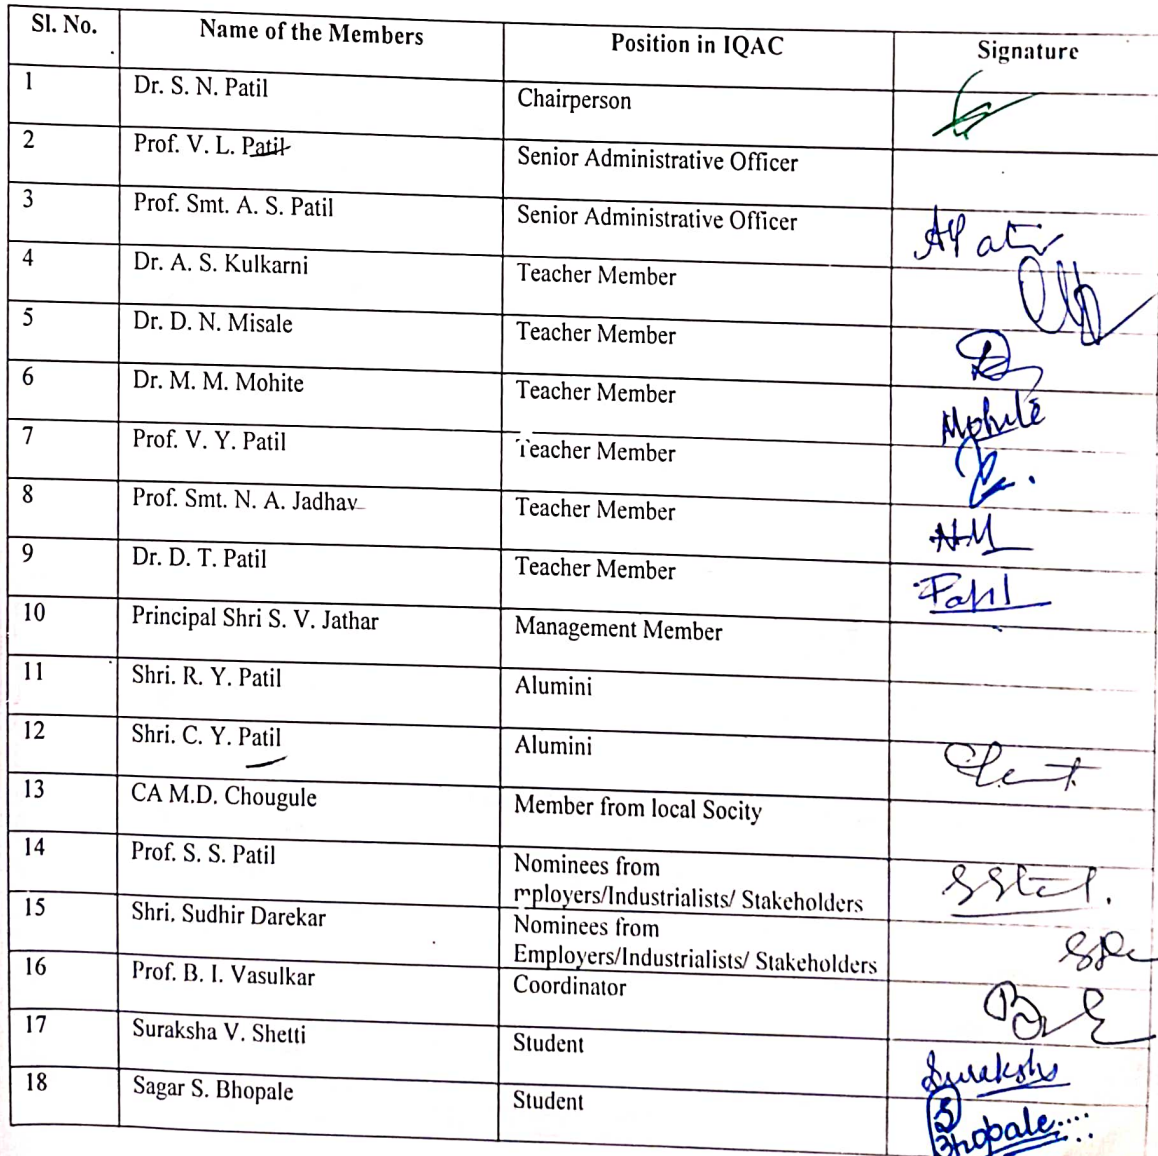 Sl. No. Name of the Members Position in IQAC Signature
1 Dr. S. N. Patil Chairperson
2 Prof. V. L. Patil Senior Administrative Officer
3 Prof. Smt. A. S. Patil Senior Administrative Officer
4 Dr. A. S. Kulkarni Teacher Member
5 Dr. D. N. Misale Teacher Member
6 Dr. M. M. Mohite Teacher Member Mohite
7 Prof. V. Y. Patil Teacher Member
8 Prof. Smt. N. A. Jadhav Teacher Member
9 Dr. D. T. Patil Teacher Member Patil
10 Principal Shri S. V. Jathar Management Member
11 Shri. R. Y. Patil Alumini
12 Shri. C. Y. Patil Alumini
13 CA M.D. Chougule Member from local Socity
14 Prof. S. S. Patil Nominees from
mployers/Industrialists/ Stakeholders
15 Shri. Sudhir Darekar Nominees from
Employers/Industrialists/ Stakeholders
16 Prof. B. I. Vasulkar Coordinator
17 Suraksha V. Shetti Student Suraksha
18 Sagar S. Bhopale Student Bhopale